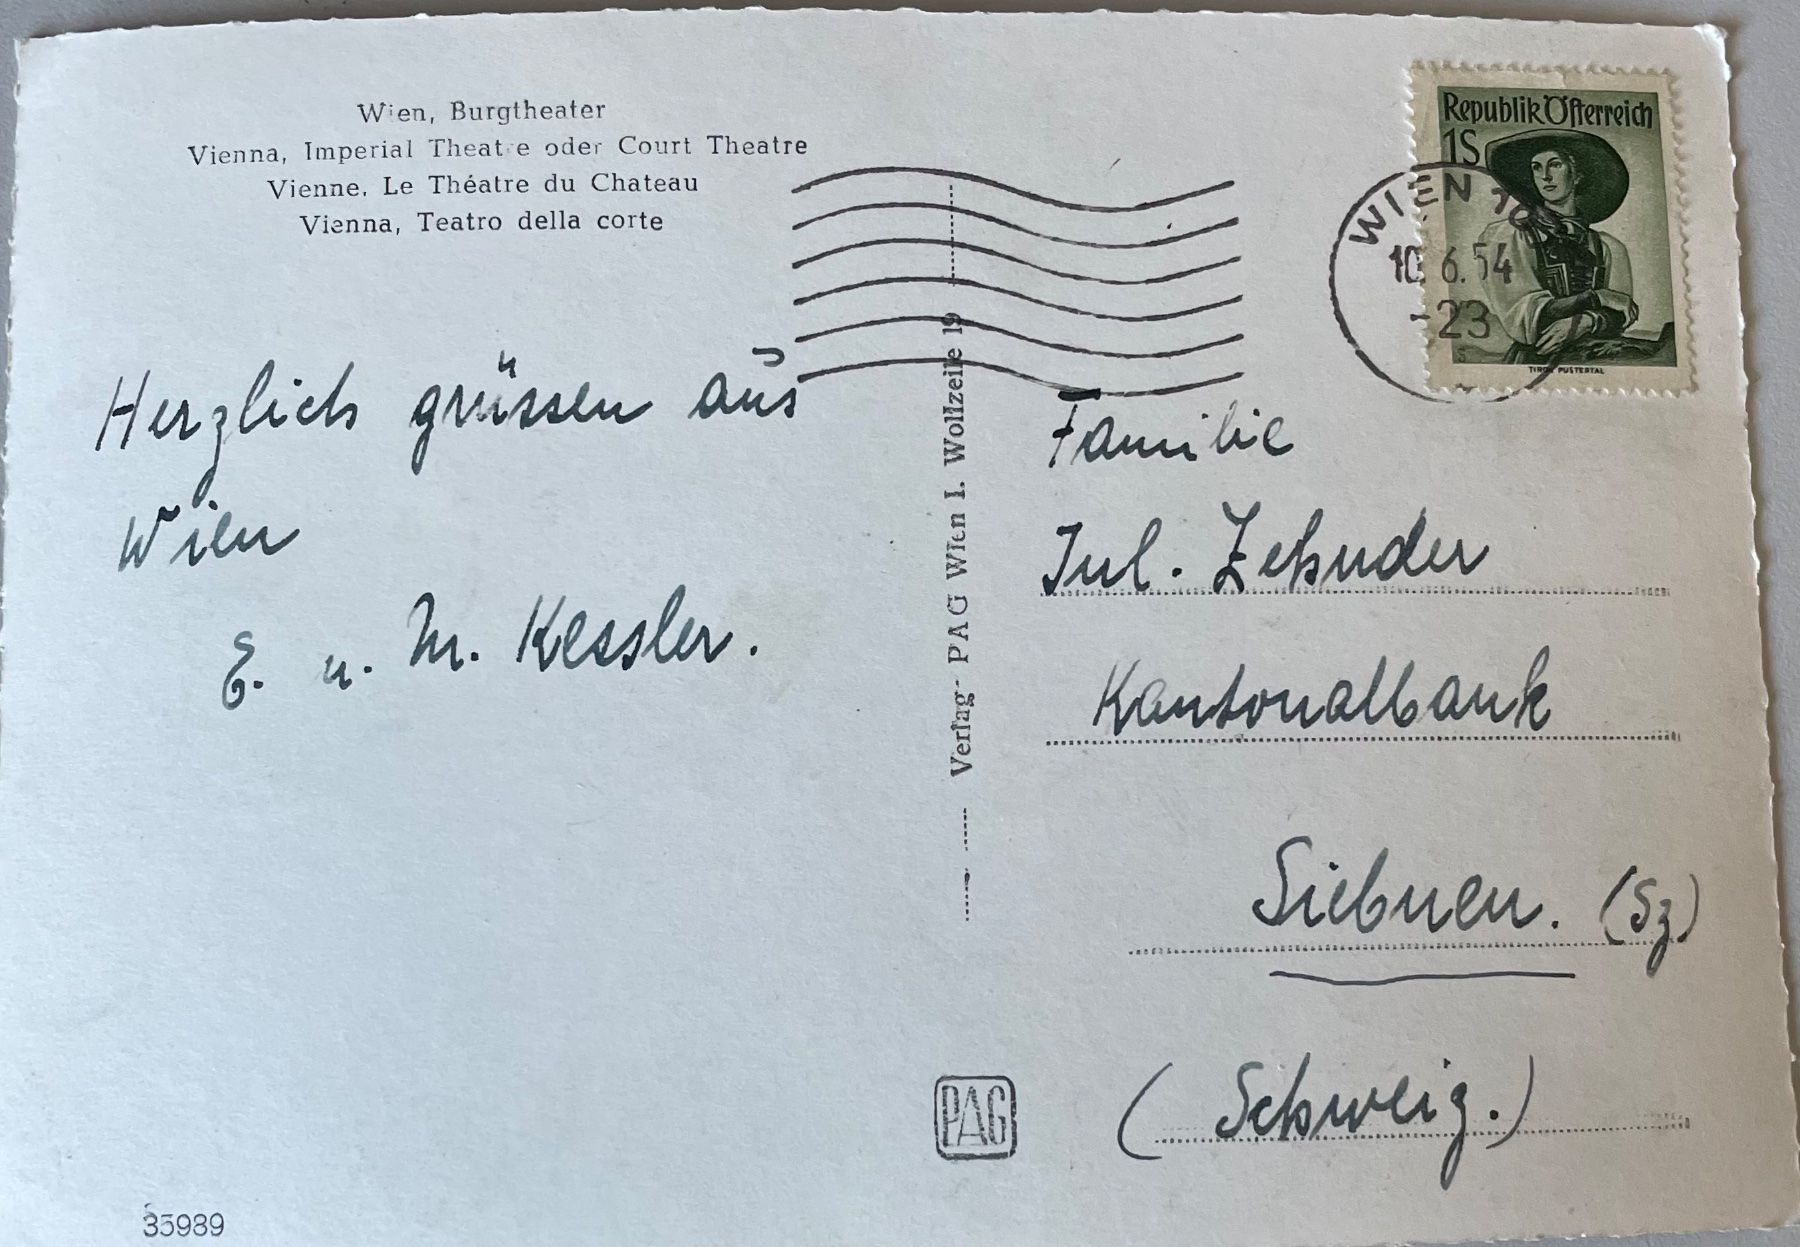 Wien, Burgtheater
Vienna, Imperial Theatre oder Court Theatre
Vienne, Le Théatre du Chateau
Vienna, Teatro della corte
Herzlich grüssen aus
Wien
E. u. M. Kessler.
Verlag PAG Wien I. Wollzeile 19
Republik Österreich
1S
TIROL PUSTERTAL
WIEN
10. 6. 54
-23
Familie
Jul. Zehnder
Kantonalbank
Siebnen. (Sz)
(Schweiz.)
PAG
35989